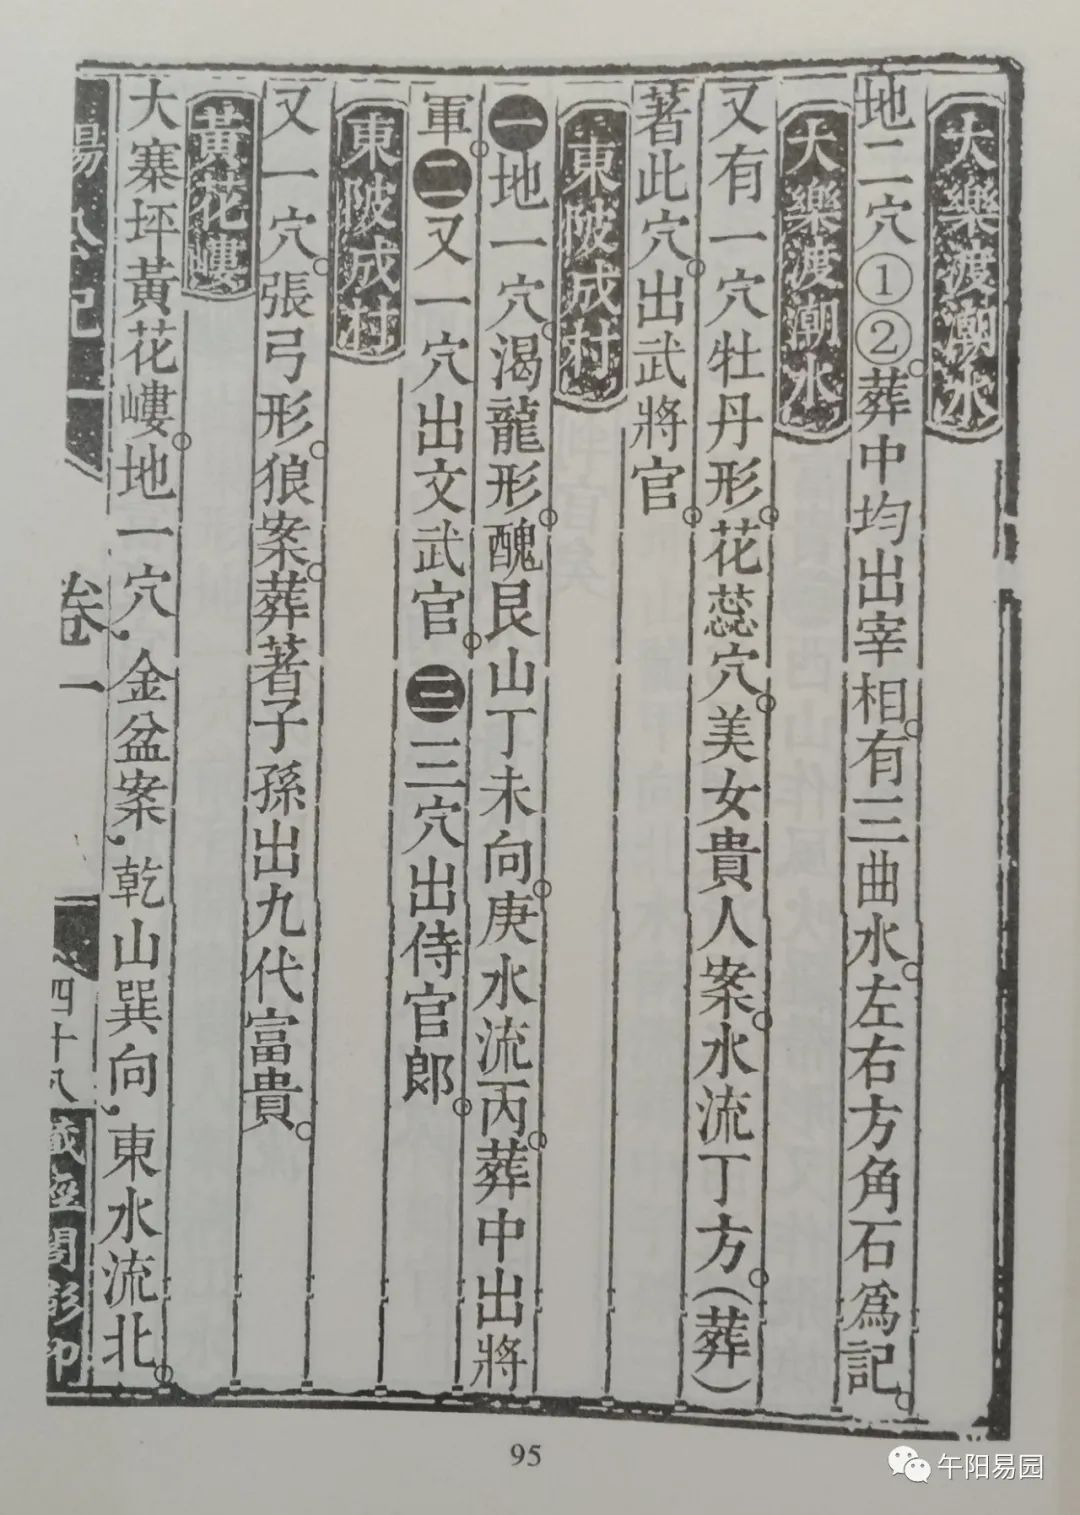 大樂渡潮水
地二穴①②。葬中均出宰相。有三曲水。左右方角石爲記。
大樂渡潮水
又有一穴牡丹形。花蕊穴。美女貴人案。水流丁方。(葬)
著此穴。出武將官。
東陂成村
㊀地一穴。渴龍形。醜艮山丁未向。庚水流丙。葬中出將
軍。㊁又一穴出文武官。㊂三穴出侍官郎。
東陂成村
又一穴。張弓形。狼案。葬著子孫出九代富貴。
黃花嶁
大寨坪黃花嶁。地一穴,金盆案,乾山巽向,東水流北。
楊公記
卷一
四十八
藏經閣影印
95
午阳易园